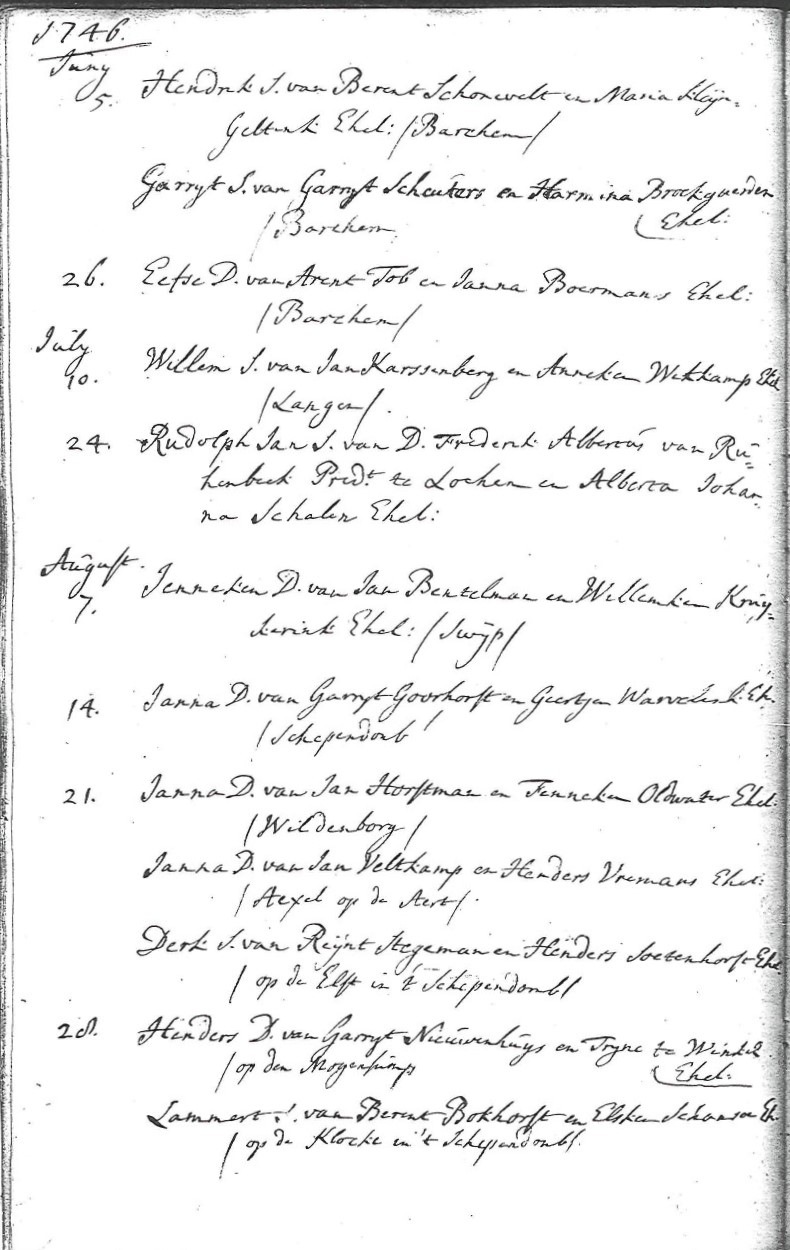 1746.
Juny
5. Hendrik S. van Berent Schonevelt en Maria Kleijn,
Geltink Ehel: /Barchem/
Garryt S. van Garryt Scheuters en Harmina Broekgaerden
/Barchem Ehel:
26. Eefse D. van Arent Tob en Janna Boermans Ehel:
/Barchem/
July
10. Willem S. van Jan Karssenberg en Anneken Weltkamp Ehel
/Langen/.
24. Rudolph Jan S. van D. Frederik Albertus van Rü=
henbeek Predt. te Lochem en Alberta Johan
na Schalen Ehel:
August.
7. Jenneken D. van Jan Bentelman en Willemken Kruy=
kerink Ehel: /Swijp/
14. Janna D. van Garryt Goorhorst en Geertjen Warvelink Eh.
/Schependomb/
21. Janna D. van Jan Horstman en Fenneken Oldwater Ehel:
/Wildenborg/
Janna D. van Jan Veltkamp en Henders Vremans Ehel:
/Aexel op de Aert/.
Derk S. van Reijnt Stegeman en Henders Soetenhorst Ehel
/op de Elst in 't Schependomb/
28. Henders D. van Garryt Nieuwenhuys en Tryne te Winkel
/op den Mogensump Ehel:
Lammert S. van Berent Bokhorst en Elsken Schansen Eh.
/op de Klocke in 't Schependomb/.